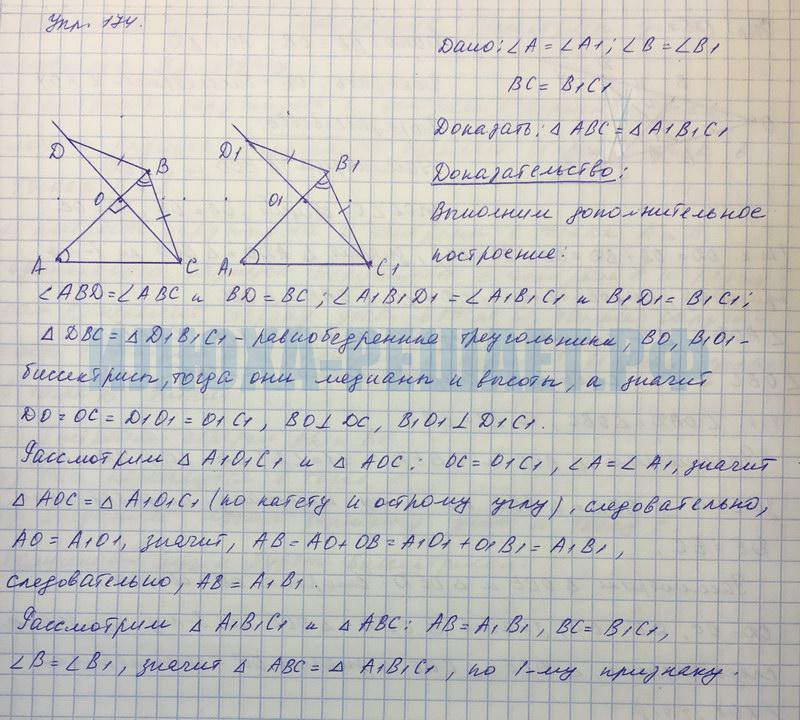 Упр. 174.
Дано: ∠A = ∠A1; ∠B = ∠B1
BC = B1C1
Доказать: △ABC = △A1B1C1
Доказательство:
Выполним дополнительное
построение:
D
B
O
A
C
D1
B1
O1
A1
C1
∠ABD=∠ABC и BD=BC; ∠A1B1D1=∠A1B1C1 и B1D1=B1C1;
△DBC=△D1B1C1 - равнобедренные треугольники, BO, B1O1-
биссектрисы, тогда они медианы и высоты, а значит
DO=OC=D1O1=O1C1, BO⊥DC, B1O1⊥D1C1.
Рассмотрим △A1O1C1 и △AOC: OC=O1C1, ∠A=∠A1, значит
△AOC=△A1O1C1 (по катету и острому углу), следовательно,
AO=A1O1, значит, AB=AO+OB=A1O1+O1B1=A1B1,
следовательно, AB=A1B1.
Рассмотрим △A1B1C1 и △ABC: AB=A1B1, BC=B1C1,
∠B=∠B1, значит △ABC=△A1B1C1, по 1-му признаку.